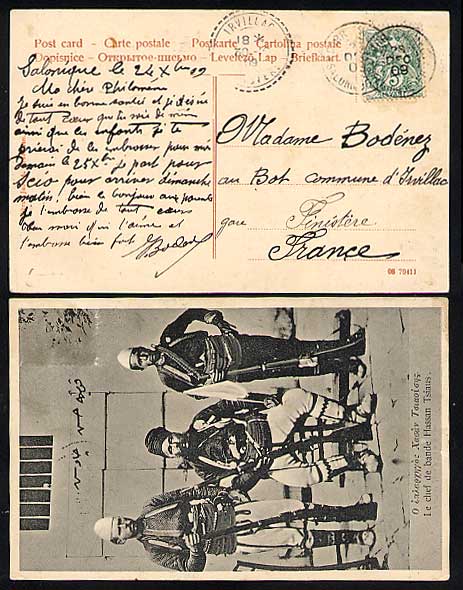 Post card - Carte postale - Postkarte - Cartolina postale
Dopisnice - Открытое письмо - Levelező-Lap - Briefkaart
Salonique le 24 Xbre 09
Ma chère Philomène
Je suis en bonne santé et je désire
de tout cœur que tu sois de même
ainsi que les enfants je te
prierai de les embrasser pour moi
Demain le 25 Xbre je part pour
Scio pour arriver dimanche
matin, bien le bonjour aux parents
je t'embrasse de tout cœur
ton mari qui t'aime et
t'embrasse bien fort
IRVILLAC
DEC
09
Madame Bodénez
au Bot commune d'Irvillac
gare
Finistère
France
08 79411
Ο λῃσταρχὸς Χασὰν Τσαούσης
Le chef de bande Hassan Tsiaus.